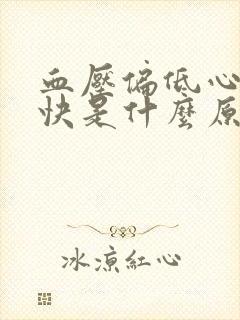 血壓偏低心
快是什麼原
冰涼紅心